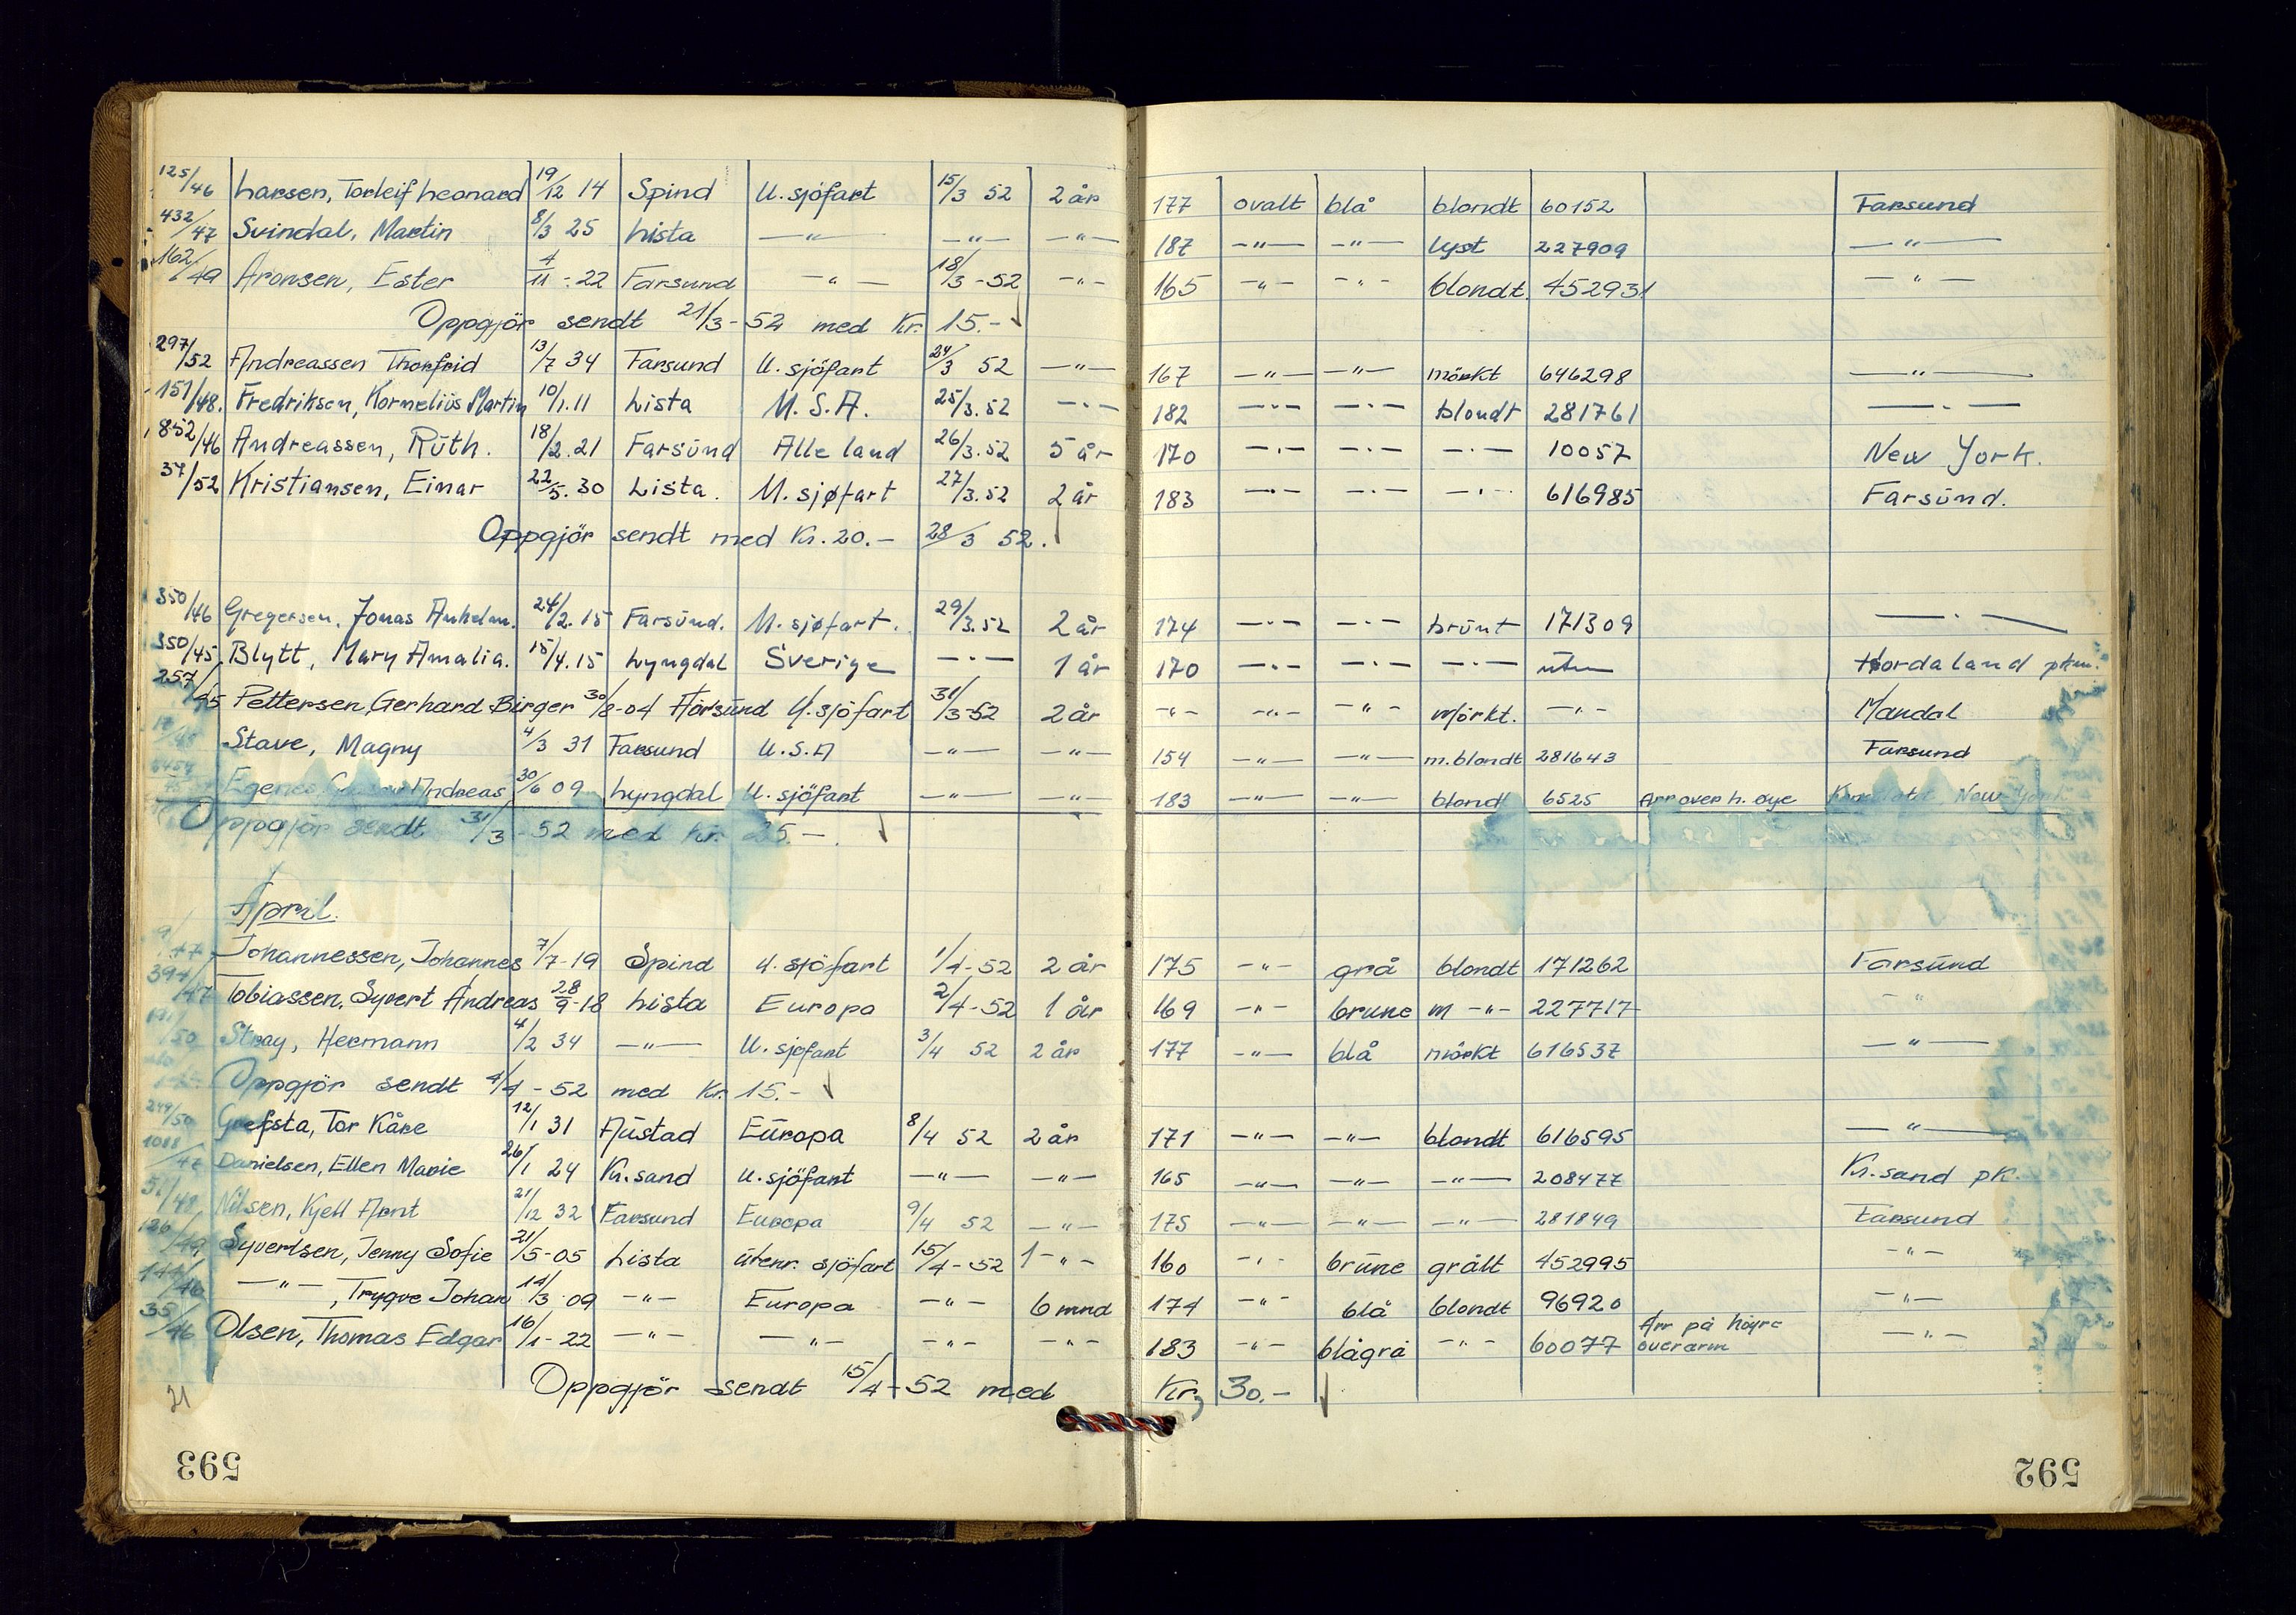 125/46 Larsen, Torleif Leonard 19/12 14 Spind U. sjöfart 15/3 52 2 år 177 ovalt blå blondt 60152 Farsund
432/47 Svindal, Martin 8/3 25 Lista —"— —"— —"— 187 —"— —"— lyst 227909 —"—
162/49 Aronsen, Ester 4/11 - 22 Farsund —"— 18/3 - 52 —"— 165 —"— —"— blondt 452931 —"—
Oppgjör sendt 21/3 - 52 med Kr. 15.-
297/52 Andreassen Thorfrid 13/7 34 Farsund U. sjöfart 24/3 52 —"— 167 —"— —"— mörkt 646298 —"—
151/48. Fredriksen, Kornelius Martin 10/1.11 Lista U.S.A. 25/3.52 —"— 182 —"— —"— blondt 281761 —"—
852/46 Andreassen, Ruth. 18/2.21 Farsund Alle land 26/3.52 5 år 170 —"— —"— —"— 10057 New York.
37/52 Kristiansen, Einar 22/5.30 Lista. U. sjøfart 27/3.52 2 år 183 —"— —"— —"— 616985 Farsund.
Oppgjör sendt med Kr. 20.- 28/3 52.
350/46 Gregersen, Jonas Anhelm. 24/2.15 Farsund. U. sjøfart. 29/3.52 2 år 174 —"— —"— brunt 171309 —"—
350/45 Blytt, Mary Amalia. 15/4.15 Lyngdal Sverige —"— 1 år 170 —"— —"— —"— uten Hordaland pkm.
257/45 Pettersen, Gerhard Birger 30/8-04 Farsund U. sjöfart 31/3-52 2 år —"— —"— —"— mörkt. —"— Mandal
Stave, Magny 4/3 31 Farsund U.S.A —"— —"— 154 —"— —"— m.blondt 281643 Farsund
Egenes Andreas 30/6 09 Lyngdal U. sjöfart —"— —"— 183 —"— —"— blondt 6525 Arr over h. øye New York
Oppgjör sendt 31/3 - 52 med kr. 25.-
April.
9/47 Johannessen, Johannes 7/7-19 Spind U. sjöfart 1/4-52 2 år 175 —"— grå blondt 171262 Farsund
394/47 Tobiassen, Syvert Andreas 28/9-18 Lista Europa 2/4-52 1 år 169 —"— brune m —"— 227717 —"—
Stray, Hermann 4/2 34 —"— U. sjøfart 3/4 52 2 år 177 —"— blå mörkt 616537 —"—
Oppgjör sendt 4/4 - 52 med Kr. 15.-
249/50 Grefsta, Tor Kåre 12/1 31 Austad Europa 8/4 52 2 år 171 —"— —"— blondt 616595 —"—
1088/47 Danielsen, Ellen Marie 26/1 24 Kr.sand U. sjöfart —"— —"— 165 —"— —"— —"— 208477 Kr.sand pk.
51/48 Nilsen, Kjell Arnt 21/12 32 Farsund Europa 9/4 52 —"— 175 —"— —"— —"— 281849 Farsund
126/49 Syvertsen, Jenny Sofie 21/5-05 Lista utenr. sjöfart 15/4-52 1 —"— 160 —"— brune grått 452995 —"—
144/46 —"—, Trygve Johan 14/3 09 —"— Europa —"— 6 mnd 174 —"— blå blondt 96920 —"—
35/46 Olsen, Thomas Edgar 16/1-22 —"— —"— —"— —"— 183 —"— blågrå —"— 60077 Arr på höyre overarm —"—
Oppgjör sendt 15/4-52 med Kr. 30.-
21
593
592